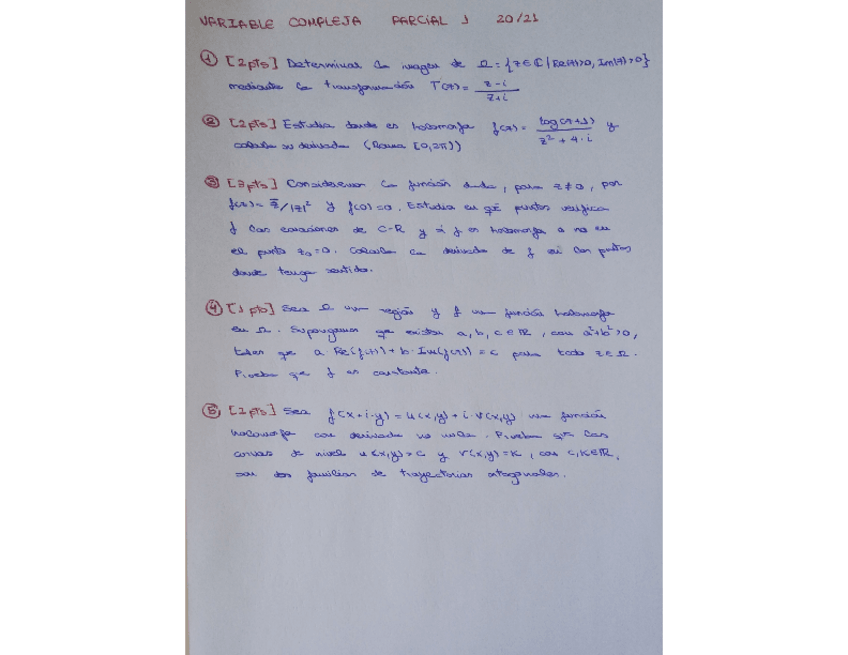 VARIABLE COMPLEJA PARCIAL 1 20/21
① [2pts] Determinar la imagen de Ω = {z∈ℂ | Re(z)>0, Im(z)>0}
mediante la transformación T(z) = (z-i)/(z+i)
② [2pts] Estudia donde es holomorfa f(z) = log(z+1)/(z²+4·i) y
calcula su derivada (Rama [0,2π))
③ [3pts] Consideremos la función dada, para z≠0, por
f(z) = z̄/|z|² y f(0)=0. Estudia en qé puntos verifica
f las ecuaciones de C-R y si f es holomorfa o no en
el punto z₀=0. Calcula la derivada de f en los puntos
donde tenga sentido.
④ [1 pto] Sea Ω una región y f una función holomorfa
en Ω. Supongamos qe existen a, b, c ∈ ℝ, con a²+b²>0,
tales qe a Re(f(z)) + b·Im(f(z)) = c para todo z∈Ω.
Prueba qe f es constante.
⑤ [2pts] Sea f(x+i·y) = u(x,y) + i·v(x,y) una función
holomorfa con derivada no nula. Prueba qe las
curvas de nivel u(x,y)=c y v(x,y)=k, con c,k∈ℝ,
son dos familias de trayectorias ortogonales.